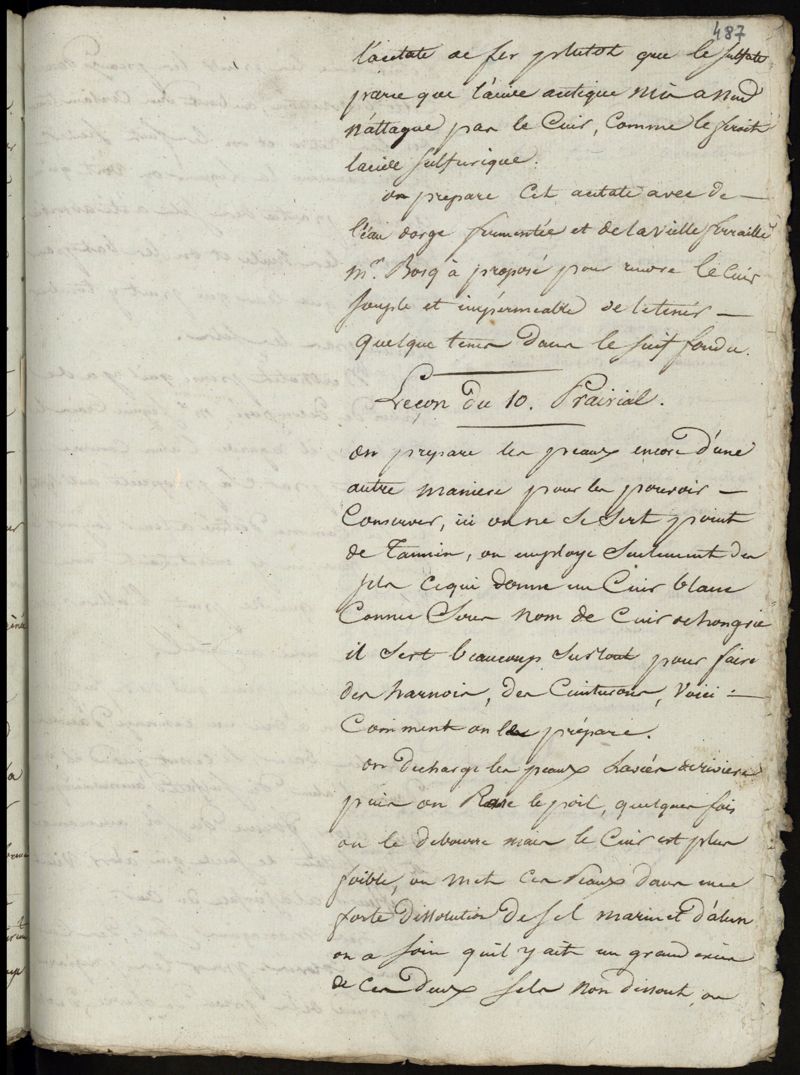 487
l'acetate de fer plutot que le sulfate
parce que l'acide acetique mis a nud
n'attaque pas le Cuir, Comme le feroit
lacide sulfurique.
on prepare Cet acetate avec de
l'eau dorge fermentée et de la vieille ferraille
mr. Bosq à proposé pour rendre le Cuir
souple et impérmeable de le tenir
quelque tems dans le suif fondu.
Leçon du 10. Prairial.
on prepare les peaux encore d'une
autre maniere pour les pouvoir
Conserver, ici on ne se sert point
de Tannin, on employe seulement des
sels ce qui donne un Cuir blanc
Connu sous nom de Cuir de hongrie
il sert beaucoup surtout pour faire
des harnois, des Ceinturons, Voici
Comment on les prépare.
on decharge les peaux Lavées de riviere
puis on Rase le poil, quelques fois
on le debourre mais le Cuir est plus
foible, on met Ces Peaux dans une
forte dissolution de sel marin et d'alun
on a soin quil y ait un grand exces
de Ces deux sels non dissout, on